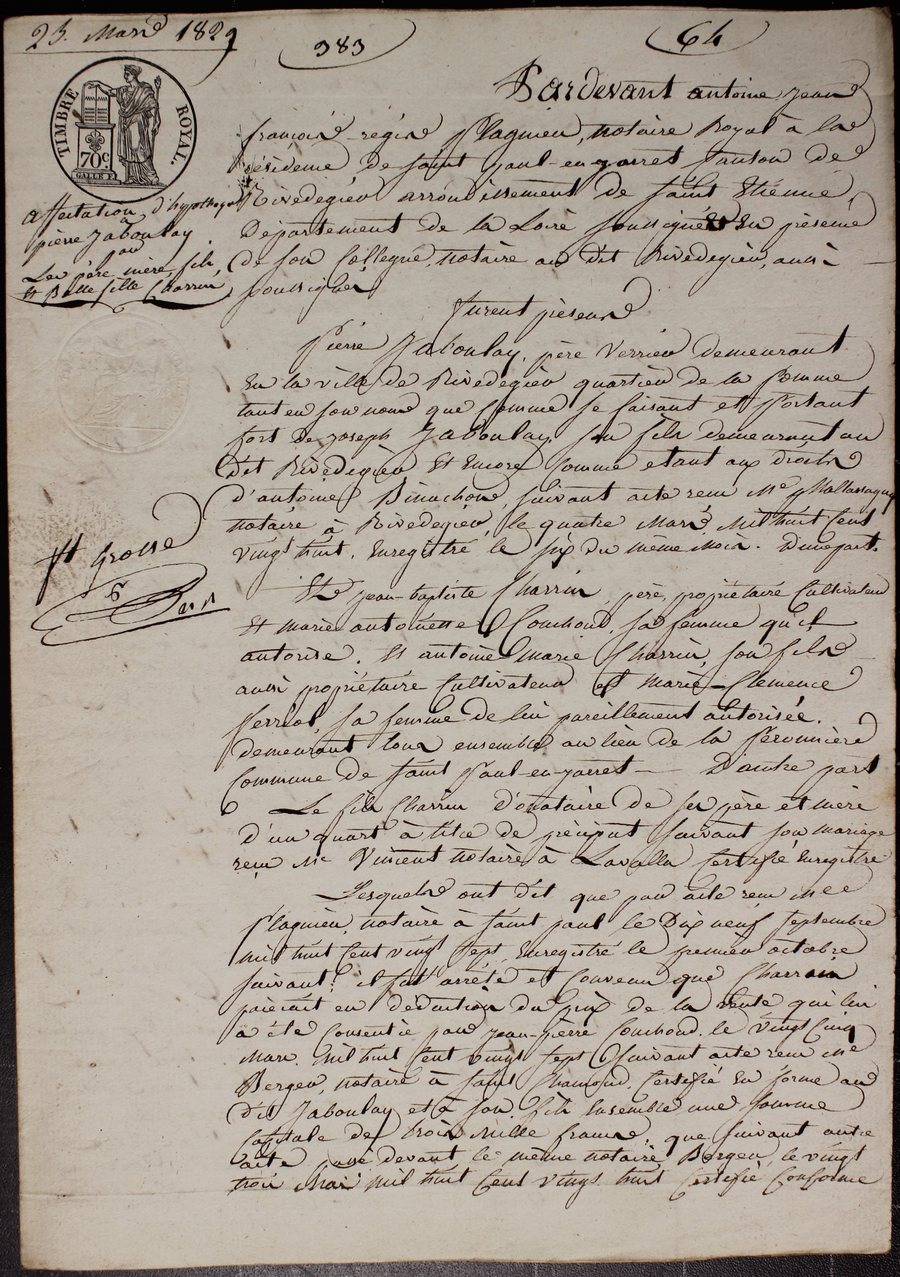 23. Mars 1829
383
64
TIMBRE ROYAL.
70c
Pardevant antoine Jean
françois régis flaguieu, notaire Royal à la
résidence de saint paul-en-jarret Canton de
Rivedegier arrondissement de saint Etienne,
Département de la Loire soussigné Et En présence
de son Collegue, notaire au dit Rivedegier, aussi
soussigné,
affectation d'hypothèque
à
pierre Jaboulay
par
Les père, mère, fils
Et Belle fille Charrin,
furent présens
Pierre Jaboulay, père Verrier demeurant
En la ville de Rivedegier quartier de la
tant en son nom que comme se faisant et portant
fort de joseph Jaboulay son fils demeurant au
dit Rivedegier Et Encore comme etant aux droits
d'antoine suivant acte reçu Me
notaire à Rivedegier, le quatre Mars Mil huit Cent
vingt huit, Enregistré le six du même Mois. D'une part.
ft Grosse
Et Jean-baptiste Charrin, père, propriétaire Cultivateur
Et marie antoinette Couchoud, sa femme qu'il
autorise, Et antoine Marie Charrin, son fils
aussi propriétaire Cultivateur et Marie-Clemence
sa femme de lui pareillement autorisée.
demeurant tous ensemble au lieu de la
Commune de saint Paul-en-jarret — D'autre part
Le fils Charrin donataire de ses père et mère
d'un quart à titre de préciput suivant son mariage
reçu Me Vincent notaire à Lavalla Certifié Enregistré
Lesquels ont dit que par acte reçu Me
flaguieu, notaire à saint paul le Dix neuf septembre
mil huit Cent vingt sept, Enregistré le premier octobre
suivant, il fut arrêté et Convenu que Charrin
païerait en déduction du prix de la vente qui lui
a été Consentie par Jean-pierre Couchoud, le Vingt Cinq
Mars Mil huit Cent vingt sept suivant acte reçu Me
Berger, notaire à saint Chamond, Certifié En forme au
dit Jaboulay et à son fils Ensemble une somme
Capitale de trois Mille francs, que suivant autre
acte devant le même notaire Berger, le vingt
trois Mai Mil huit Cent vingt huit Certifié Conforme